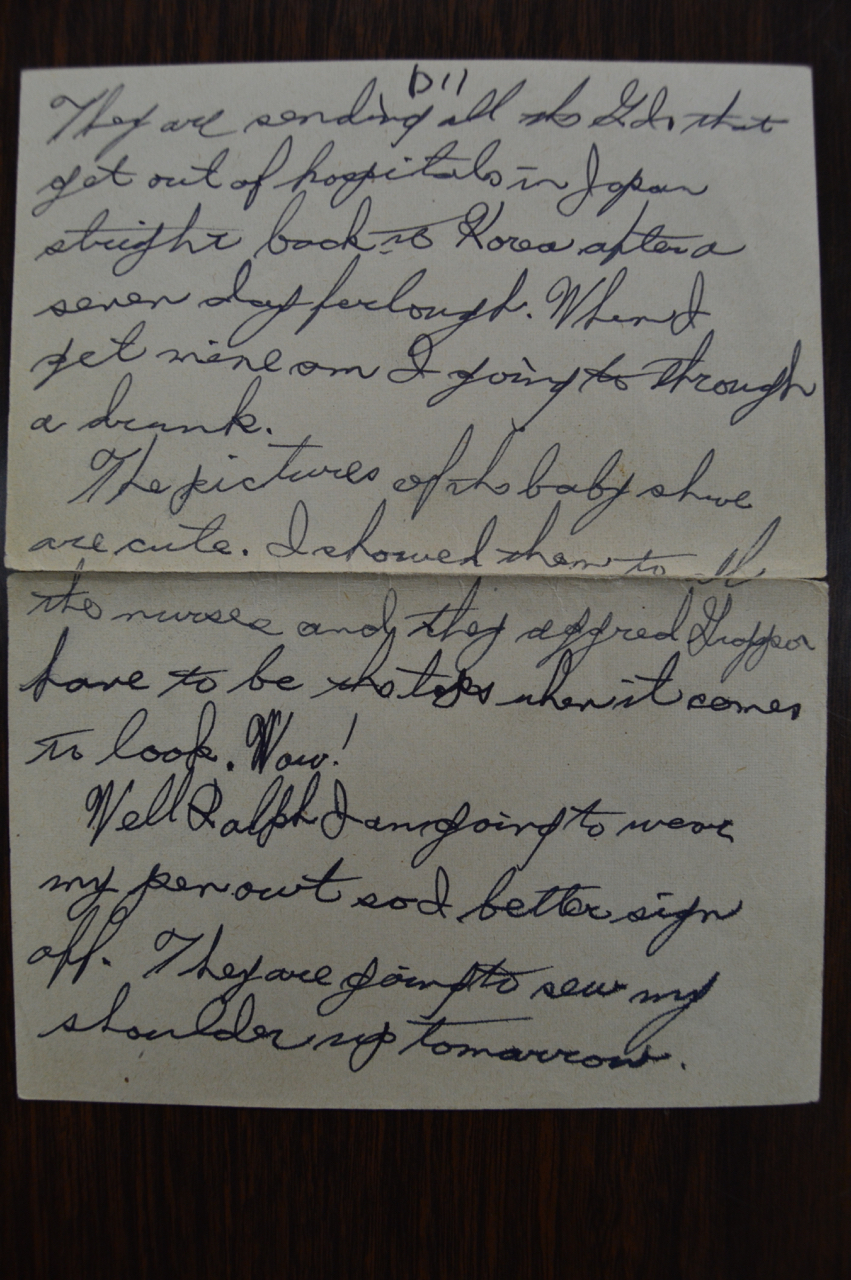 D11
They are sending all the G.I.s that
get out of hospitals in Japan
streight back to Korea after a
seven day ferlough. When I
get mine am I going to through
a drunk.
The pictures of the baby shure
are cute. I showed them to all
the nurses and they
have to be the tops when it comes
to look. Wow!
Well Ralph I am going to wear
my pen owt so I better sign
off. They are going to sew my
shoulder up tomarrow.